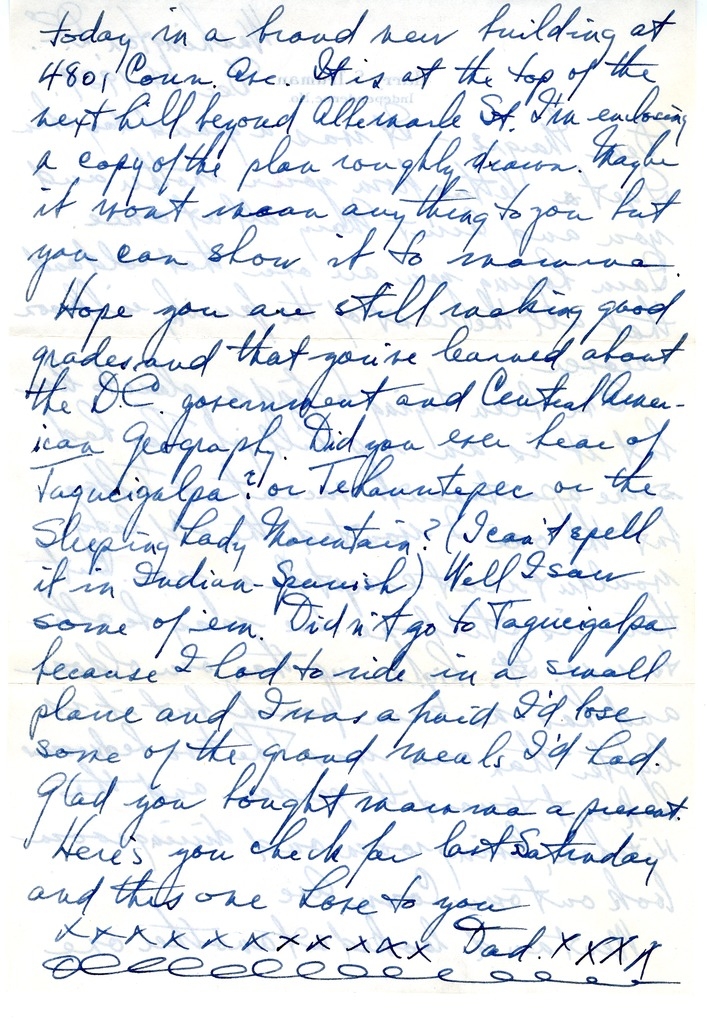 today in a brand new building at
4801 Conn. Ave. It is at the top of the
next hill beyond Albemarle St. I'm enclosing
a copy of the plan roughly drawn. Maybe
it wont mean anything to you but
you can show it to mamma.
Hope you are still making good
grades and that you've learned about
the D.C. government and Central Amer-
ican Geography. Did you ever hear of
Tagucigalpa? or Tehauntepec or the
Sleeping Lady Mountain? (I can't spell
it in Indian-Spanish) Well I saw
some of 'em. Didn't go to Tagucigalpa
because I had to ride in a small
plane and I was afraid I'd lose
some of the grand meals I'd had.
Glad you bought mamma a present.
Here's you check for last Saturday
and this one Love to you
x x x x x x x x x x x x Dad. x x x x